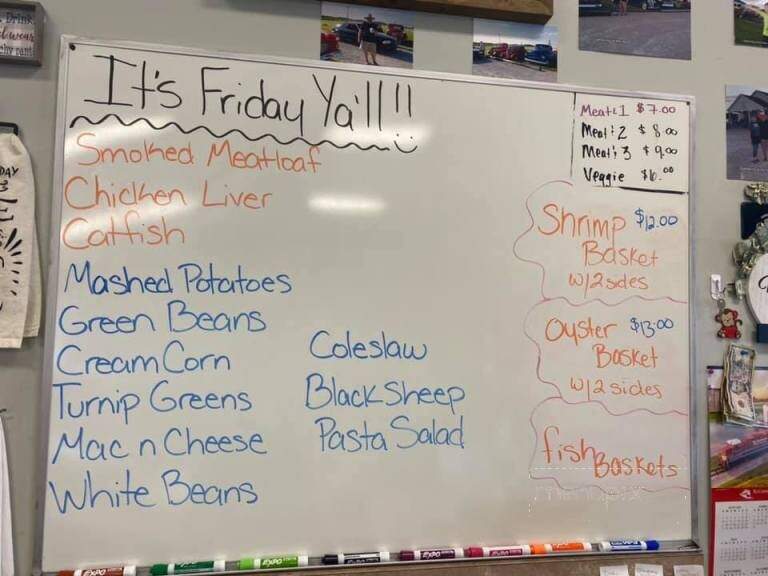 It's Friday Ya'll!!
Smoked Meatloaf
Chicken Liver
Catfish
Mashed Potatoes
Green Beans
Cream Corn
Turnip Greens
Mac n Cheese
White Beans
Coleslaw
Black Sheep
Pasta Salad
Meat & 1 $7.00
Meat & 2 $8.00
Meat & 3 $9.00
Veggie
Shrimp $12.00
Basket
w/2 sides
Oyster $13.00
Basket
w/2 sides
fish
Baskets
menupix
EXPO
EXPO
EXPO
EXPO
EXPO